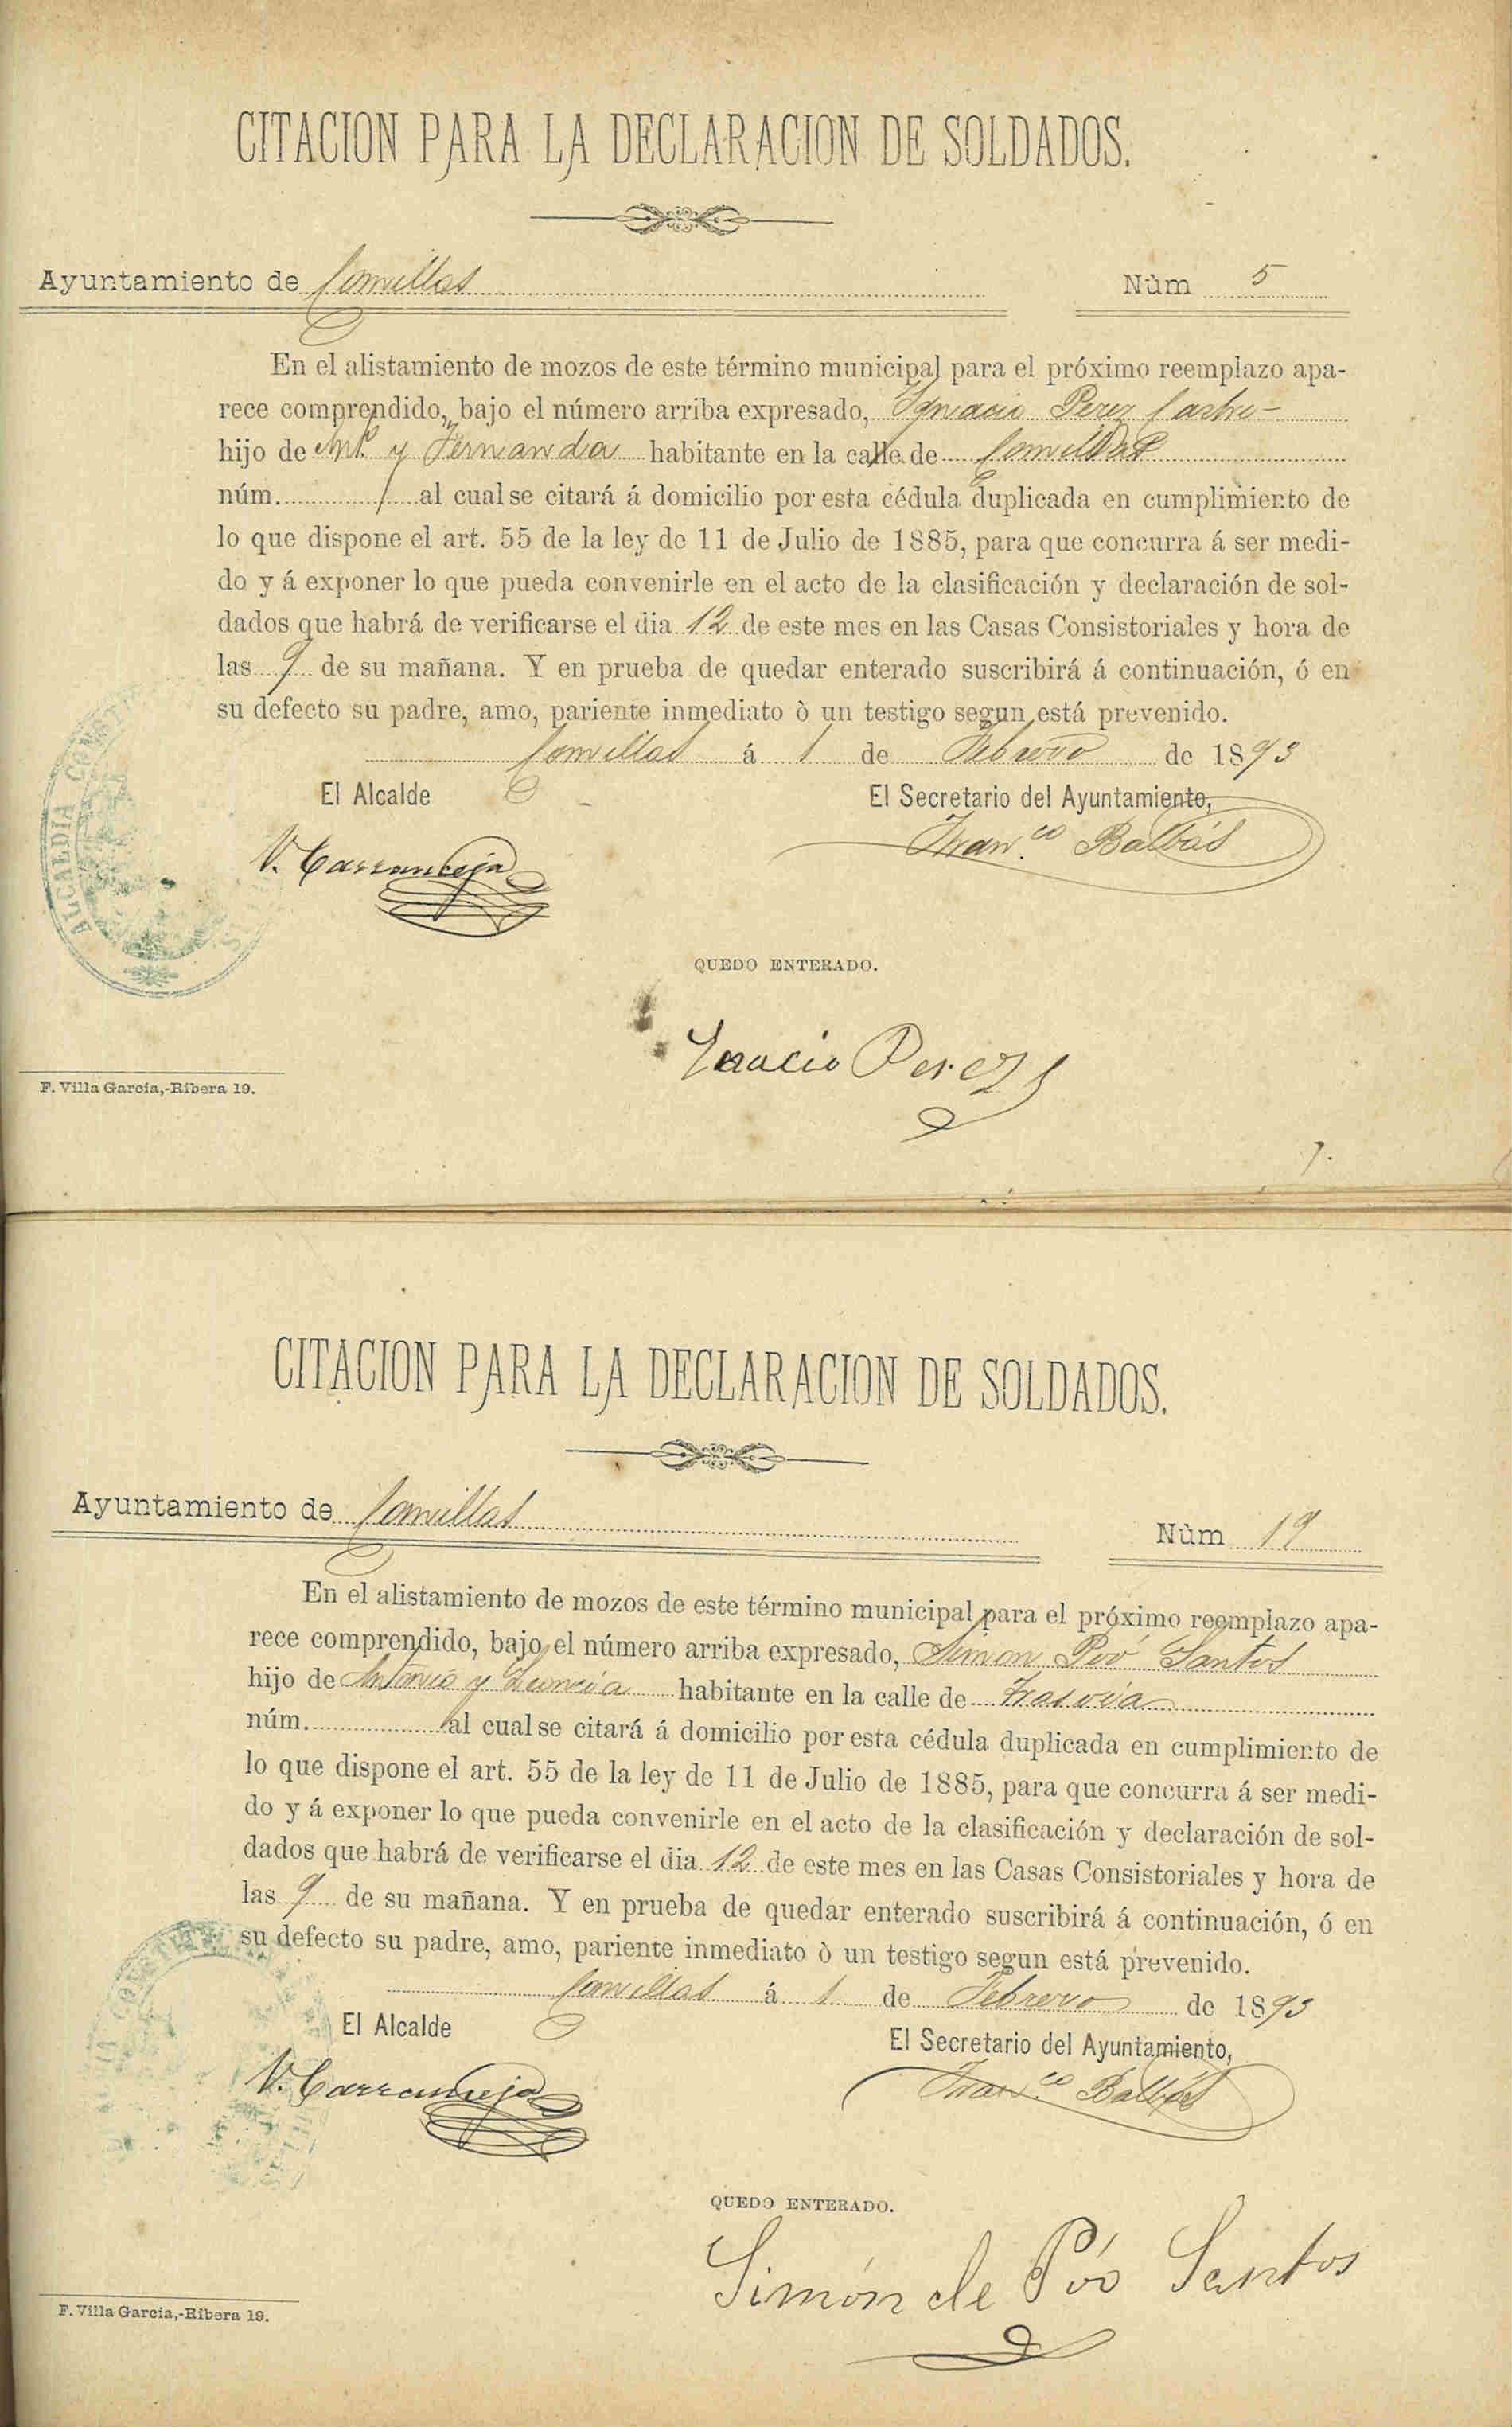 CITACION PARA LA DECLARACION DE SOLDADOS.
Ayuntamiento de Comillas
Nùm 5
En el alistamiento de mozos de este término municipal para el próximo reemplazo apa-
rece comprendido, bajo el número arriba expresado, Ygnacio Perez Castro
hijo de Ant.º y Fernanda habitante en la calle de Comillas
núm. al cual se citará á domicilio por esta cédula duplicada en cumplimiento de
lo que dispone el art. 55 de la ley de 11 de Julio de 1885, para que concurra á ser medi-
do y á exponer lo que pueda convenirle en el acto de la clasificación y declaración de sol-
dados que habrá de verificarse el dia 12 de este mes en las Casas Consistoriales y hora de
las 9 de su mañana. Y en prueba de quedar enterado suscribirá á continuación, ó en
su defecto su padre, amo, pariente inmediato ò un testigo segun está prevenido.
Comillas á 1 de Febrero de 1893
El Alcalde
El Secretario del Ayuntamiento,
V. Carranceja
Fran.co Balbás
ALCALDIA
QUEDO ENTERADO.
Ynacio Perez
F. Villa García,-Ribera 19.
7.
CITACION PARA LA DECLARACION DE SOLDADOS.
Ayuntamiento de Comillas
Nùm 19
En el alistamiento de mozos de este término municipal para el próximo reemplazo apa-
rece comprendido, bajo el número arriba expresado, Simon Póo Santos
hijo de Antonio y habitante en la calle de Trasvia
núm. al cual se citará á domicilio por esta cédula duplicada en cumplimiento de
lo que dispone el art. 55 de la ley de 11 de Julio de 1885, para que concurra á ser medi-
do y á exponer lo que pueda convenirle en el acto de la clasificación y declaración de sol-
dados que habrá de verificarse el dia 12 de este mes en las Casas Consistoriales y hora de
las 9 de su mañana. Y en prueba de quedar enterado suscribirá á continuación, ó en
su defecto su padre, amo, pariente inmediato ò un testigo segun está prevenido.
Comillas á 1 de Febrero de 1893
El Alcalde
El Secretario del Ayuntamiento,
V. Carranceja
Fran.co Balbás
QUEDO ENTERADO.
Simón de Póo Santos
F. Villa García,-Ribera 19.